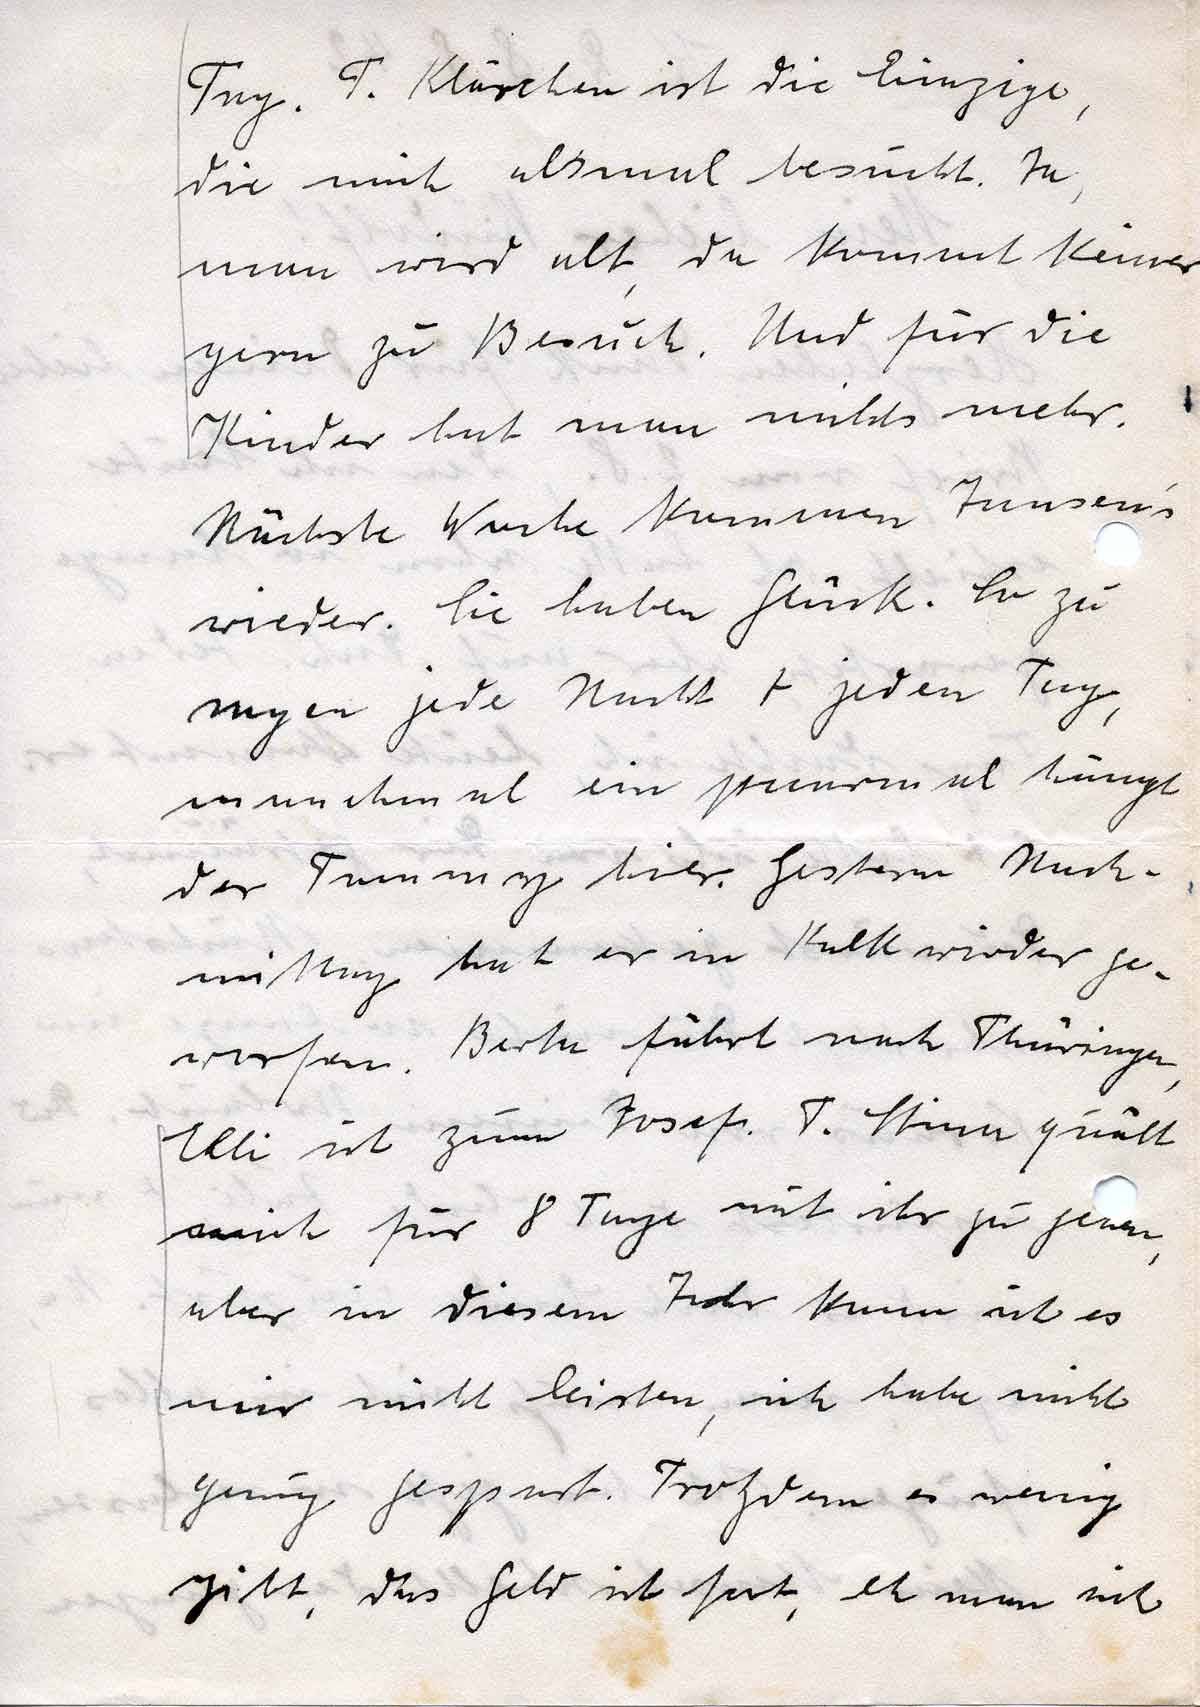 Tag. T. Klärchen ist die Einzige,
die mich alsmal besucht. Ja,
man wird alt, da kommt keiner
gern zu Besuch. Und für die
Kinder hat man nichts mehr.
Nächste Woche kommen Jansen's
wieder. Sie haben Glück. So zu
sagen jede Nacht + jeden Tag,
manchmal ein paarmal hängt
der Tommy hier. Gestern Nach-
mittag hat er in Kalk wieder ge-
worfen. Berta fährt nach Thüringen,
Elli ist zum Josef. T. Stina quält
mich für 8 Tage mit ihr zu gehen,
aber in diesem Jahr kann ich es
mir nicht leisten, ich habe nicht
genug gespart. Trotzdem es wenig
gibt, das Geld ist fort, eh man sich